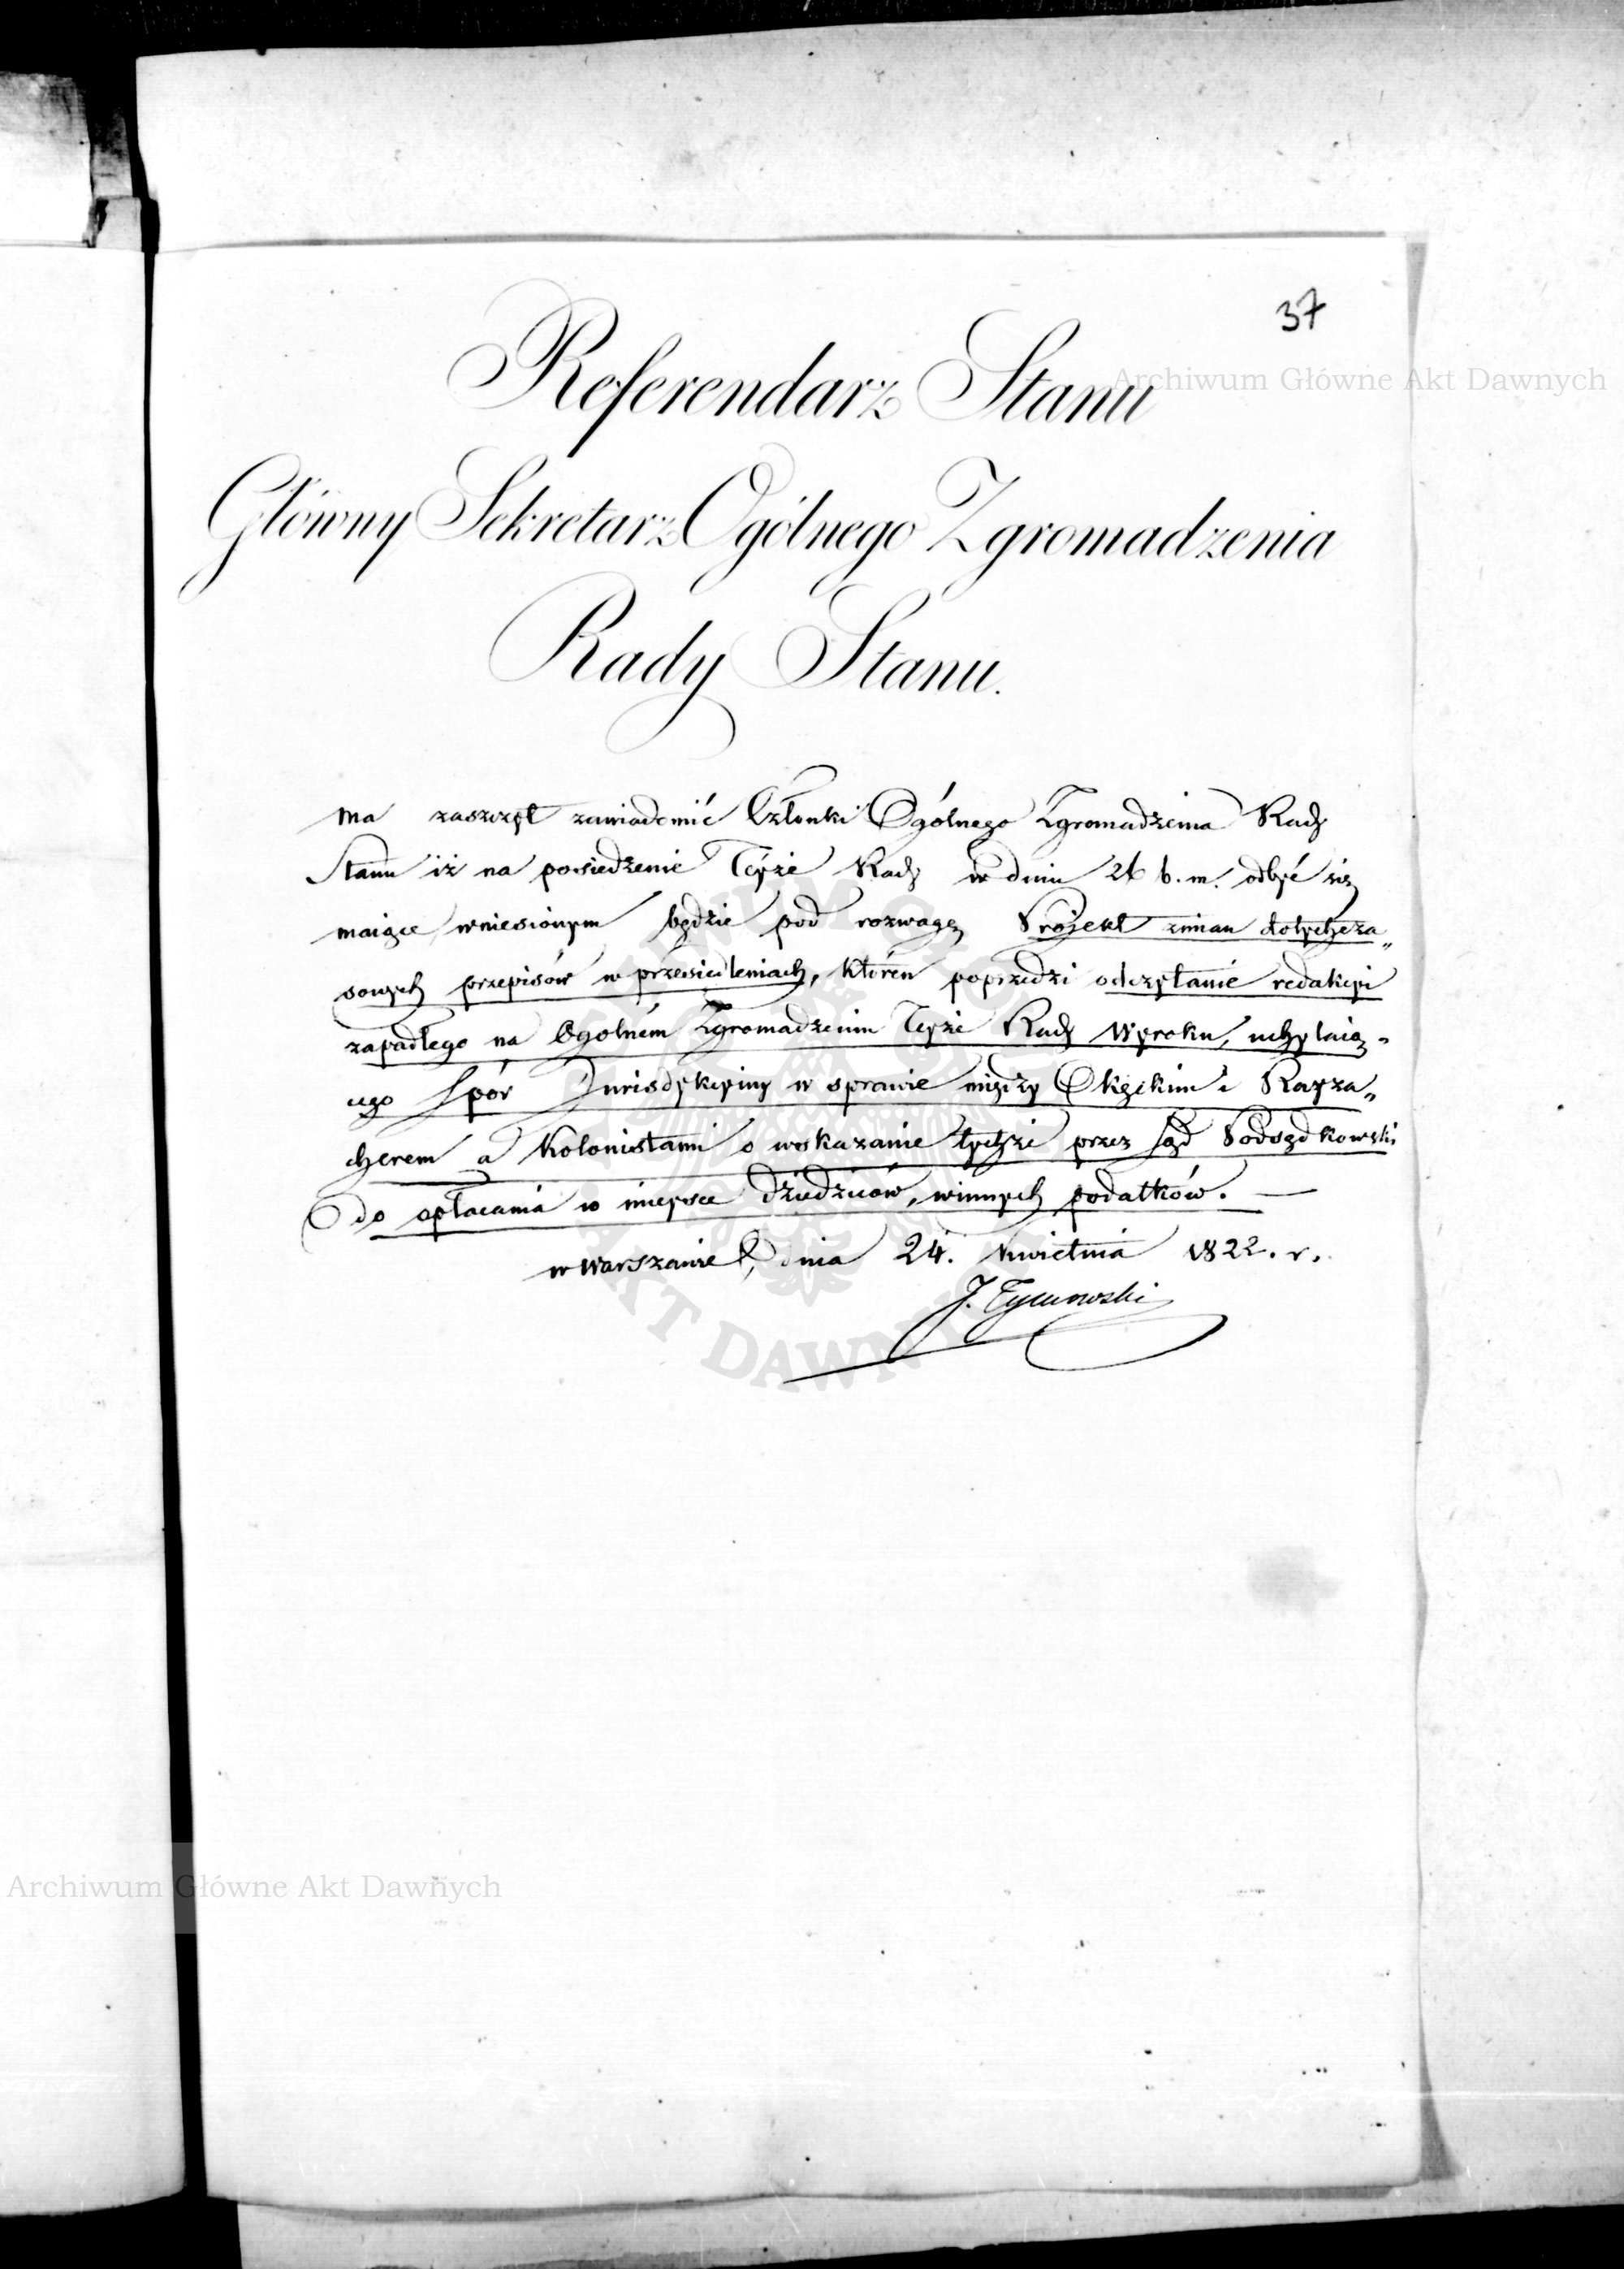 37
Referendarz Stanu
Główny Sekretarz Ogólnego Zgromadzenia
Rady Stanu.
ma zaszczyt zawiadomić Członki Ogólnego Zgromadzenia Rady
Stanu iż na posiedzenie Teyże Rady w dniu 26 b. m. odbyć się
maiące, wniesionym będzie pod rozwagę Projekt zmian dotychcza„
sowych przepisów w przesiedleniach, któren poprzedzi odczytanie redakcyi
zapadłego na Ogolném Zgromadzeniu Teyże Rady Wyroku, uchylaią-
cego Spór Jurisdykcyiny w sprawie między Okęckim i Rayza„
cherem a Kolonistami o wskazanie tychże przez Sąd Podsędkowski
do opłacania w mieysce dziedziców, winnych podatków. —
w Warszawie, dnia 24. Kwietnia 1822. r.
J. Tymowski
Archiwum Główne Akt Dawnych
Archiwum Główne Akt Dawnych
AKT DAWN